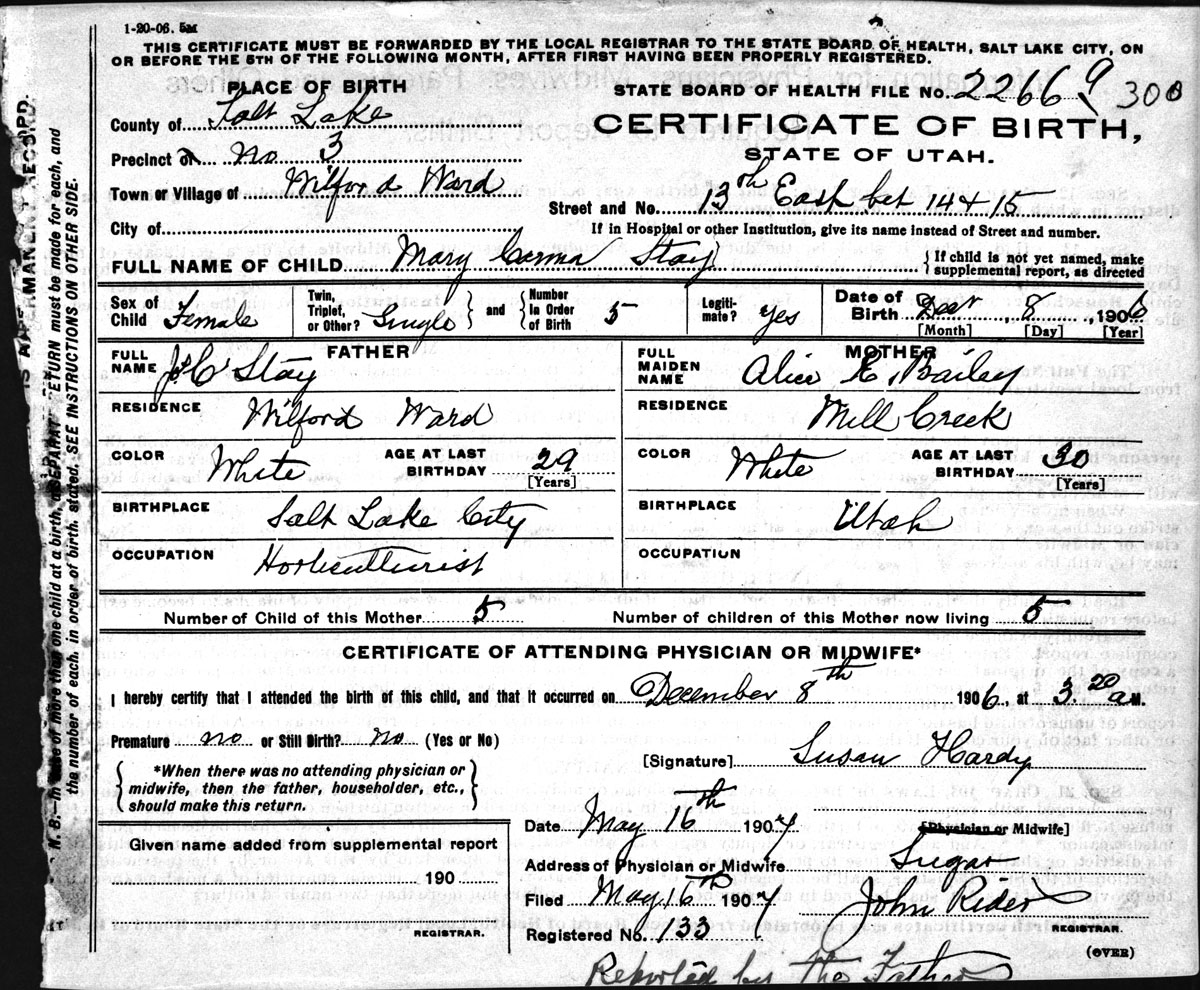 1-20-06. 5M
THIS CERTIFICATE MUST BE FORWARDED BY THE LOCAL REGISTRAR TO THE STATE BOARD OF HEALTH, SALT LAKE CITY, ON
OR BEFORE THE 5TH OF THE FOLLOWING MONTH, AFTER FIRST HAVING BEEN PROPERLY REGISTERED.
PLACE OF BIRTH
STATE BOARD OF HEALTH FILE No. 22669 300
County of Salt Lake
CERTIFICATE OF BIRTH,
Precinct or No 3
STATE OF UTAH.
Town or Village of Wilford Ward
Street and No. 13th East bet 14 + 15
City of
If in Hospital or other Institution, give its name instead of Street and number.
FULL NAME OF CHILD Mary Stay
{ If child is not yet named, make supplemental report, as directed
Sex of Child Female
Twin, Triplet, or Other? Single } and { Number in Order of Birth 5
Legitimate? Yes
Date of Birth Dec 8, 1906
[Month] [Day] [Year]
FATHER
FULL NAME Stay
RESIDENCE Wilford Ward
COLOR White AGE AT LAST BIRTHDAY 29 [Years]
BIRTHPLACE Salt Lake City
OCCUPATION Horticulturist
MOTHER
FULL MAIDEN NAME Alice E. Bailey
RESIDENCE Mill Creek
COLOR White AGE AT LAST BIRTHDAY 30 [Years]
BIRTHPLACE Utah
OCCUPATION
Number of Child of this Mother 5 Number of children of this Mother now living 5
CERTIFICATE OF ATTENDING PHYSICIAN OR MIDWIFE*
I hereby certify that I attended the birth of this child, and that it occurred on December 8th 1906, at 3.20 a M.
Premature no or Still Birth? no (Yes or No)
{ *When there was no attending physician or midwife, then the father, householder, etc., should make this return. }
[Signature] Susan Hardy
[Physician or Midwife]
Date May 16th 1907
Given name added from supplemental report
190
REGISTRAR.
Address of Physician or Midwife Sugar
Filed May 16th 1907 John Rider
Registered No. 133 REGISTRAR.
(OVER)
Reported by the Father
RECORD.
N. B.—In case of more than one child at a birth, a SEPARATE RETURN must be made for each, and
the number of each, in order of birth, stated. SEE INSTRUCTIONS ON OTHER SIDE.